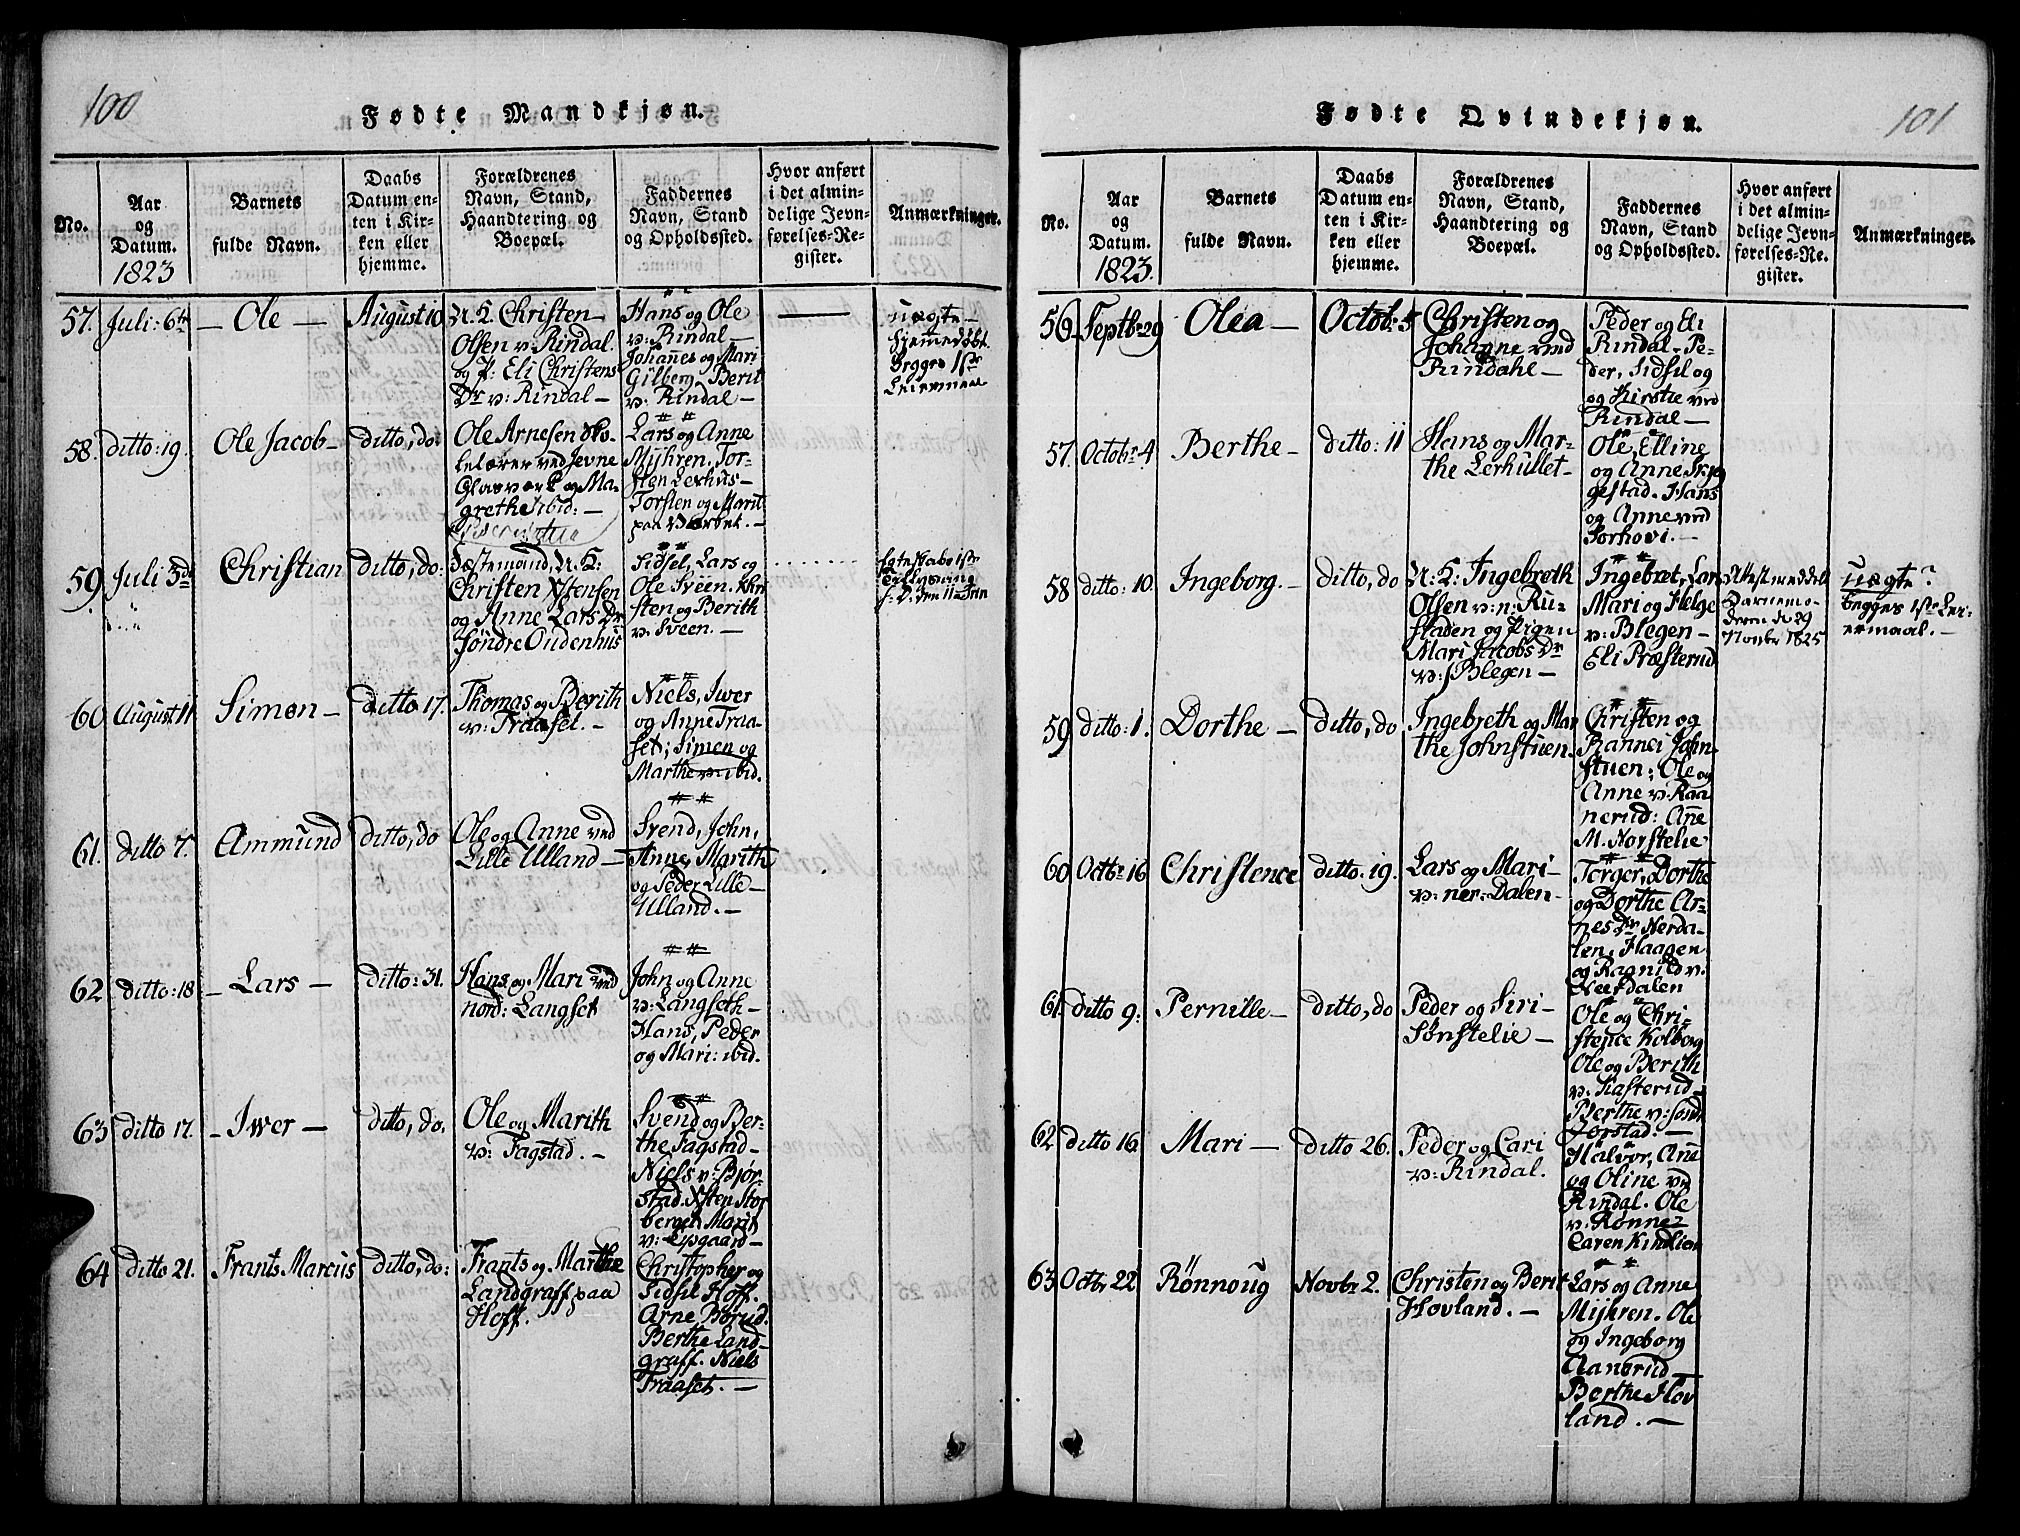 100
Fødte Mandkjøn.
No.
Aar
og
Datum.
1823
Barnets
fulde Navn.
Daabs
Datum en-
ten i Kir-
ken eller
hjemme.
Forældrenes
Navn, Stand,
Haandtering og
Boepæl.
Faddernes
Navn, Stand
og Opholdssted.
Hvor anført
i det almin-
delige Jevn-
førelses-Re-
gister.
Anmærkninger.
57. Juli: 6te
– Ole –
August 10
U. K. Christen
Olsen v: Rindal.
og P: Eli Christens
Dr v: Rindal –
Hans og Ole
v: Rindal –
Johanes og Mari
Gilberg – Berit
v: Rindal –
uægte –
hjemedøbt
begges 1ste
Leiermaal
58. ditto: 19.
Ole Jacob –
ditto, do:
Ole Arnesen
ved Jevne
Glasværk og Ma-
grethe ibid: –
Lars og Anne
Mÿhren, Tor-
sten Lerhus –
Torsten og Marit
paa Værket. –
59. Juli 3de
Christian
ditto, do:
Fæstemand, U. K:
Christen Ystensen
og Anne Lars Dr
søndre Oudenhus
Sidsel, Lars og
Ole Sveen. Chri
sten og Berith
v: Sveen. –
60. August 11
Simon –
ditto 17.
Thomas og Berith
v: Traaset. –
Niels, Iwer
og Anne Traa-
set; Simen og
Marthe v: ibid.
61. ditto 7.
Ammund
ditto, do
Ole og Anne ved
Lille Ulland –
Svend, John,
Anne, Marith
og Peder Lille –
Ulland. –
62. ditto: 18
– Lars –
ditto: 31.
Hans og Mari ved
nord: Langset
John og Anne
v: Langseth –
Hans, Peder
og Mari: ibid.
63 ditto 17.
– Iwer –
ditto, do.
Ole og Marith
v: Fagstad. –
Svend og Ber-
the Fagstad –
Niels v: Bjør-
stad. Ysten Stor
berget Marit
v: Opgaard –
64 ditto 21.
Frants Marcus
ditto, do:
Frants og Marthe
Landgraff paa
Hoff.
Christopher og
Sidsil Hoff.
Arne Børud.
Berthe Land-
graff. Niels
Traaset. –
101
Fødte Qvindekjøn.
No.
Aar
og
Datum.
1823.
Barnets
fulde Navn.
Daabs
Datum en-
ten i Kir-
ken eller
hjemme.
Forældrenes
Navn, Stand,
Haandtering og
Boepæl.
Faddernes
Navn, Stand
og Opholdssted.
Hvor anført
i det almin-
delige Jevn-
førelses-Re-
gister.
Anmærkninger.
56 Septbr 29
Olea –
Octob: 5
Christen og
Johanne ved
Rindahl –
Peder og Eli
Rindal – Pe-
der, Sidsil og
og Kirstie ved
Rindal –
57. Octobr 4
Berthe –
ditto: 11
Hans og Mar-
the Lerhullet –
Ole, Elline
og Anne
gestad. Hans
og Anne ved
Sorhovi. –
58 ditto: 10.
Ingeborg. –
ditto, do
U. K: Ingebreth
Olsen v: n: Ru-
staden og Pigen
Mari Jacobs Dr
v: Blegen –
Ingebret, Lars
Mari og Helge
v: Blegen –
Eli Præsterud
Attest meddelt
Barnemo-
deren d. 29
Novber 1825
uægte?
begges 1ste Lei-
ermaal. –
59 ditto: 1.
Dorthe –
ditto, do
Ingebreth og Mar
the Johnstuen.
Christen og
Rannei John-
stuen; Ole og
Anne v: Raa
nerud: Ane
M. Norstelie
60 Octbr 16
Christence
ditto: 19.
Lars og Mari –
v: ner: Dalen –
Torger, Dorthe
og Dorthe Ar-
nes Dr Nerda-
len, Haagen
og Ragnild v:
Neerdalen
61. ditto 9:
Pernille –
ditto, do
Peder og Siri –
Sønstelie –
Ole og Chri-
stence Kolberg
Ole og Berith
v: Kasterud –
Berthe v: sond
Jorstad. –
62. ditto 16.
Mari –
ditto 26.
Peder og Cari
v: Rindal.
Halvor, Ane
og Oline ved
Rindal. Ole
v: Rønne
Caren Kindlien
63 Octbr 22
Rønnoug
Novbr 2.
Christen og Berit
Hovland. –
Lars og Anne
Mijhren. Ole
og Ingeborg
Aanerud –
Berthe Hov
land. –